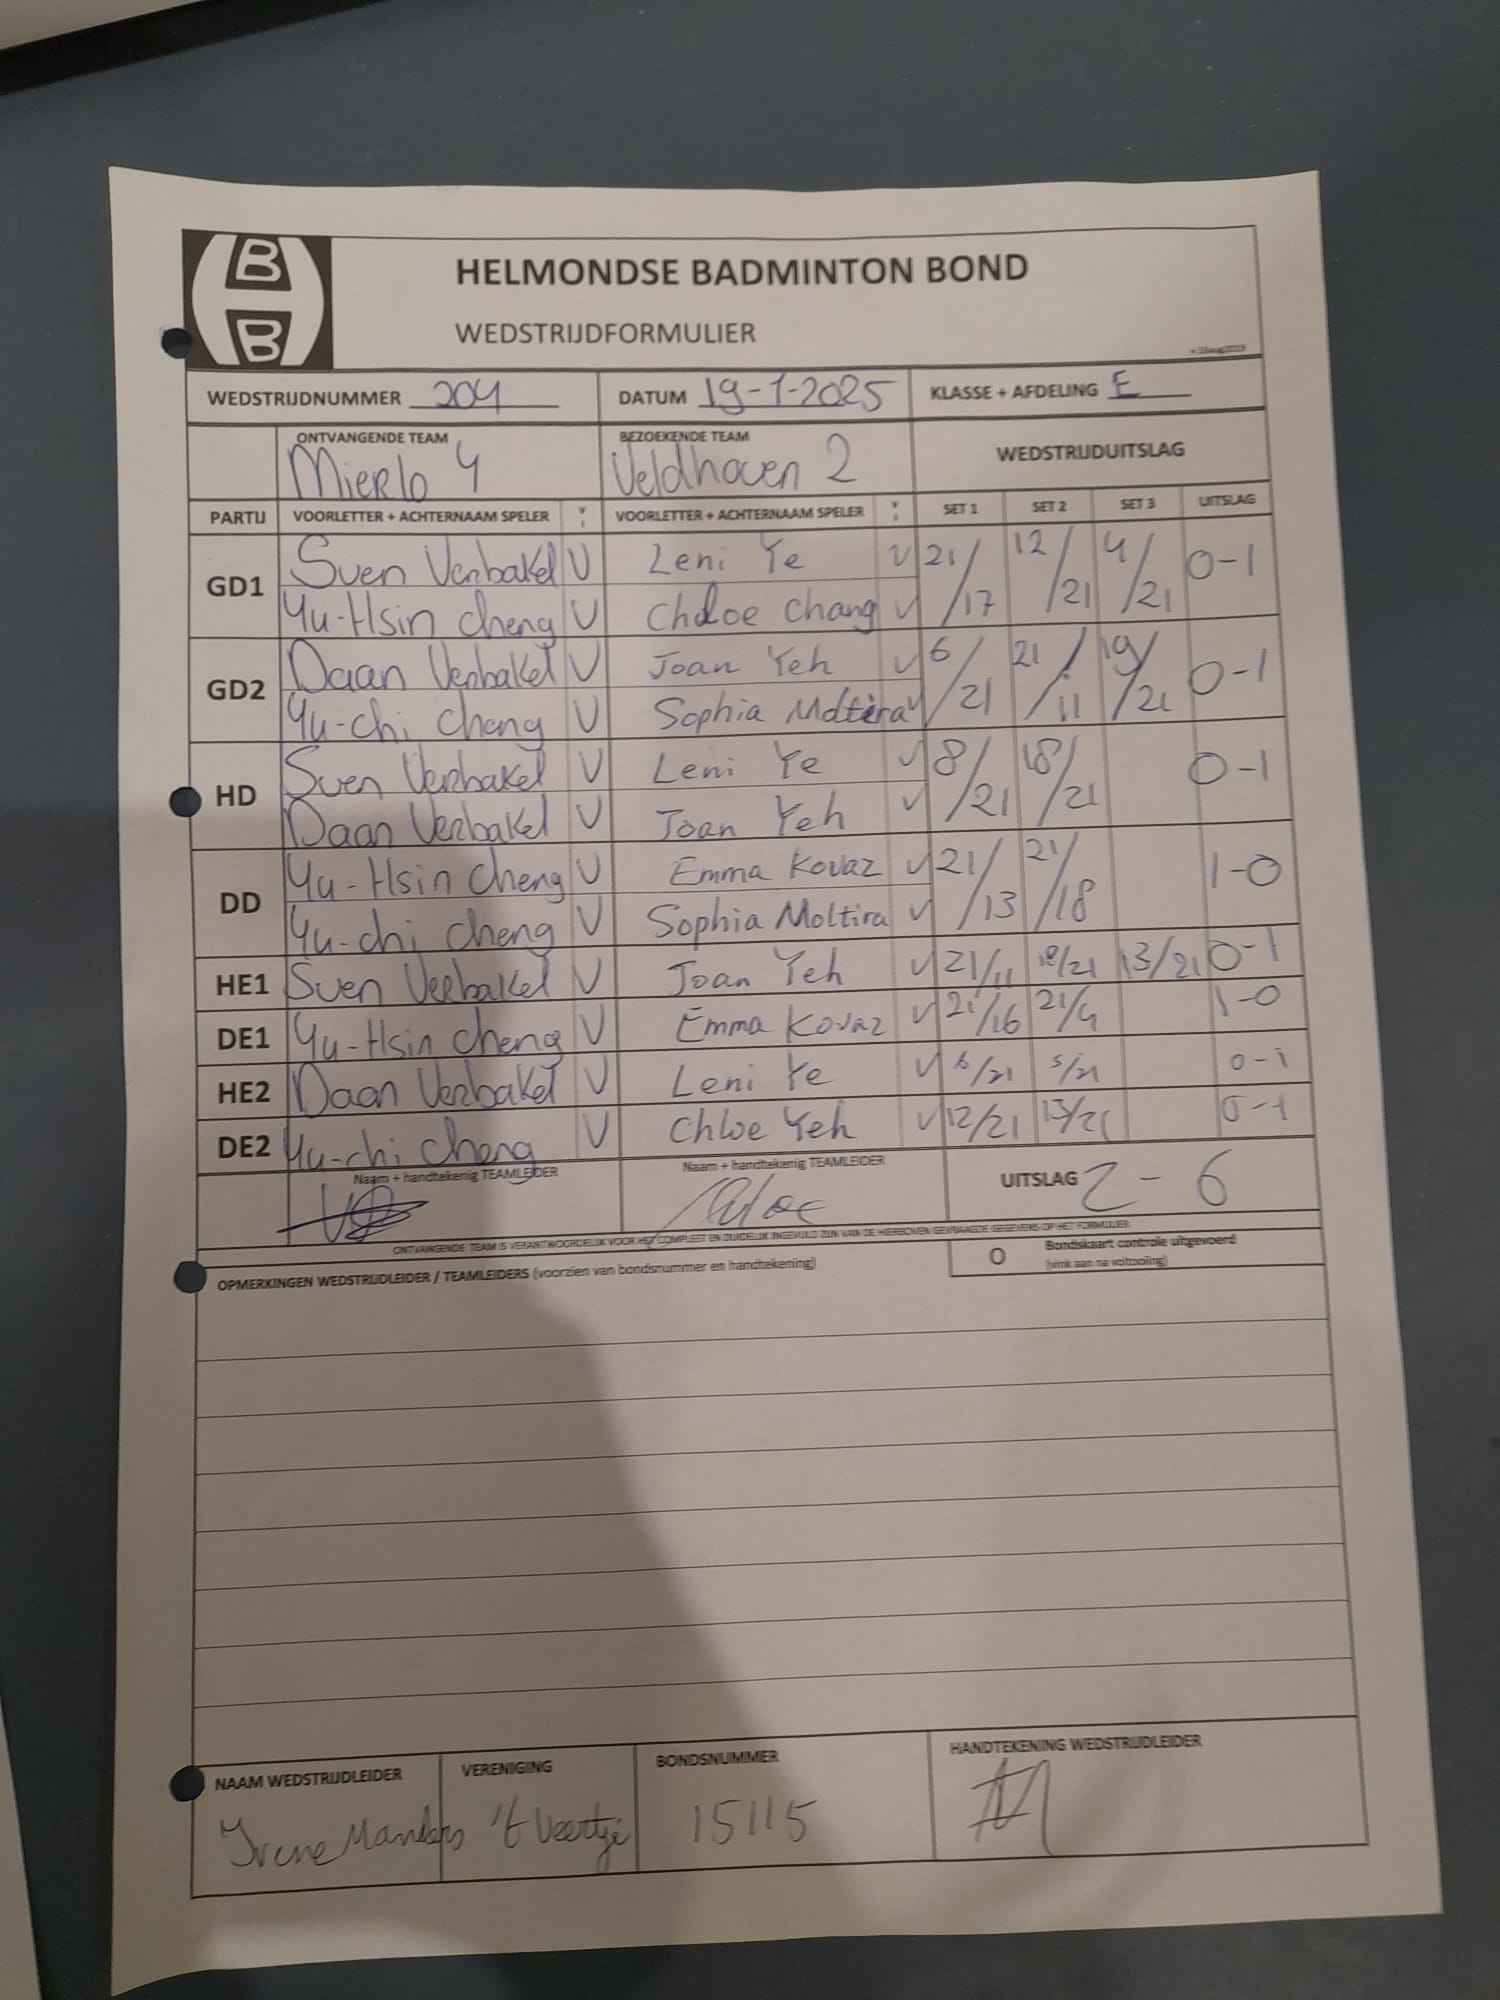 B
B
HELMONDSE BADMINTON BOND
WEDSTRIJDFORMULIER
WEDSTRIJDNUMMER 204 DATUM 19-1-2025 KLASSE + AFDELING E
ONTVANGENDE TEAM BEZOEKENDE TEAM WEDSTRIJDUITSLAG
Mierlo 4 Veldhoven 2
PARTIJ VOORLETTER + ACHTERNAAM SPELER VOORLETTER + ACHTERNAAM SPELER SET 1 SET 2 SET 3 UITSLAG
GD1 Sven Verbakel V Leni Ye V 21/17 12/21 4/21 0-1
Yu-Hsin Cheng V Chloe Chang V
GD2 Daan Verbakel V Joan Yeh V 6/21 21/11 19/21 0-1
Yu-chi Cheng V Sophia Moltira V
HD Sven Verbakel V Leni Ye V 8/21 18/21 0-1
Daan Verbakel V Joan Yeh V
DD Yu-Hsin Cheng V Emma Kovaz V 21/13 21/18 1-0
Yu-chi Cheng V Sophia Moltira V
HE1 Sven Verbakel V Joan Yeh V 21/11 18/21 13/21 0-1
DE1 Yu-Hsin Cheng V Emma Kovaz V 21/16 21/9 1-0
HE2 Daan Verbakel V Leni Ye V 6/21 5/21 0-1
DE2 Yu-chi Cheng V Chloe Yeh V 12/21 13/21 0-1
Naam + handtekenig TEAMLEIDER Naam + handtekenig TEAMLEIDER UITSLAG 2-6
Chloe
ONTVANGENDE TEAM IS VERANTWOORDELIJK VOOR HET COMPLEET EN DUIDELIJK INGEVULD ZIJN VAN DE HIERBOVEN GEVRAAGDE GEGEVENS OP HET FORMULIER
OPMERKINGEN WEDSTRIJDLEIDER / TEAMLEIDERS (voorzien van bondsnummer en handtekening) O Bondskaart controle uitgevoerd
(vink aan na voltooiing)
NAAM WEDSTRIJDLEIDER VERENIGING BONDSNUMMER HANDTEKENING WEDSTRIJDLEIDER
Irene Manders 't Veertje 15115